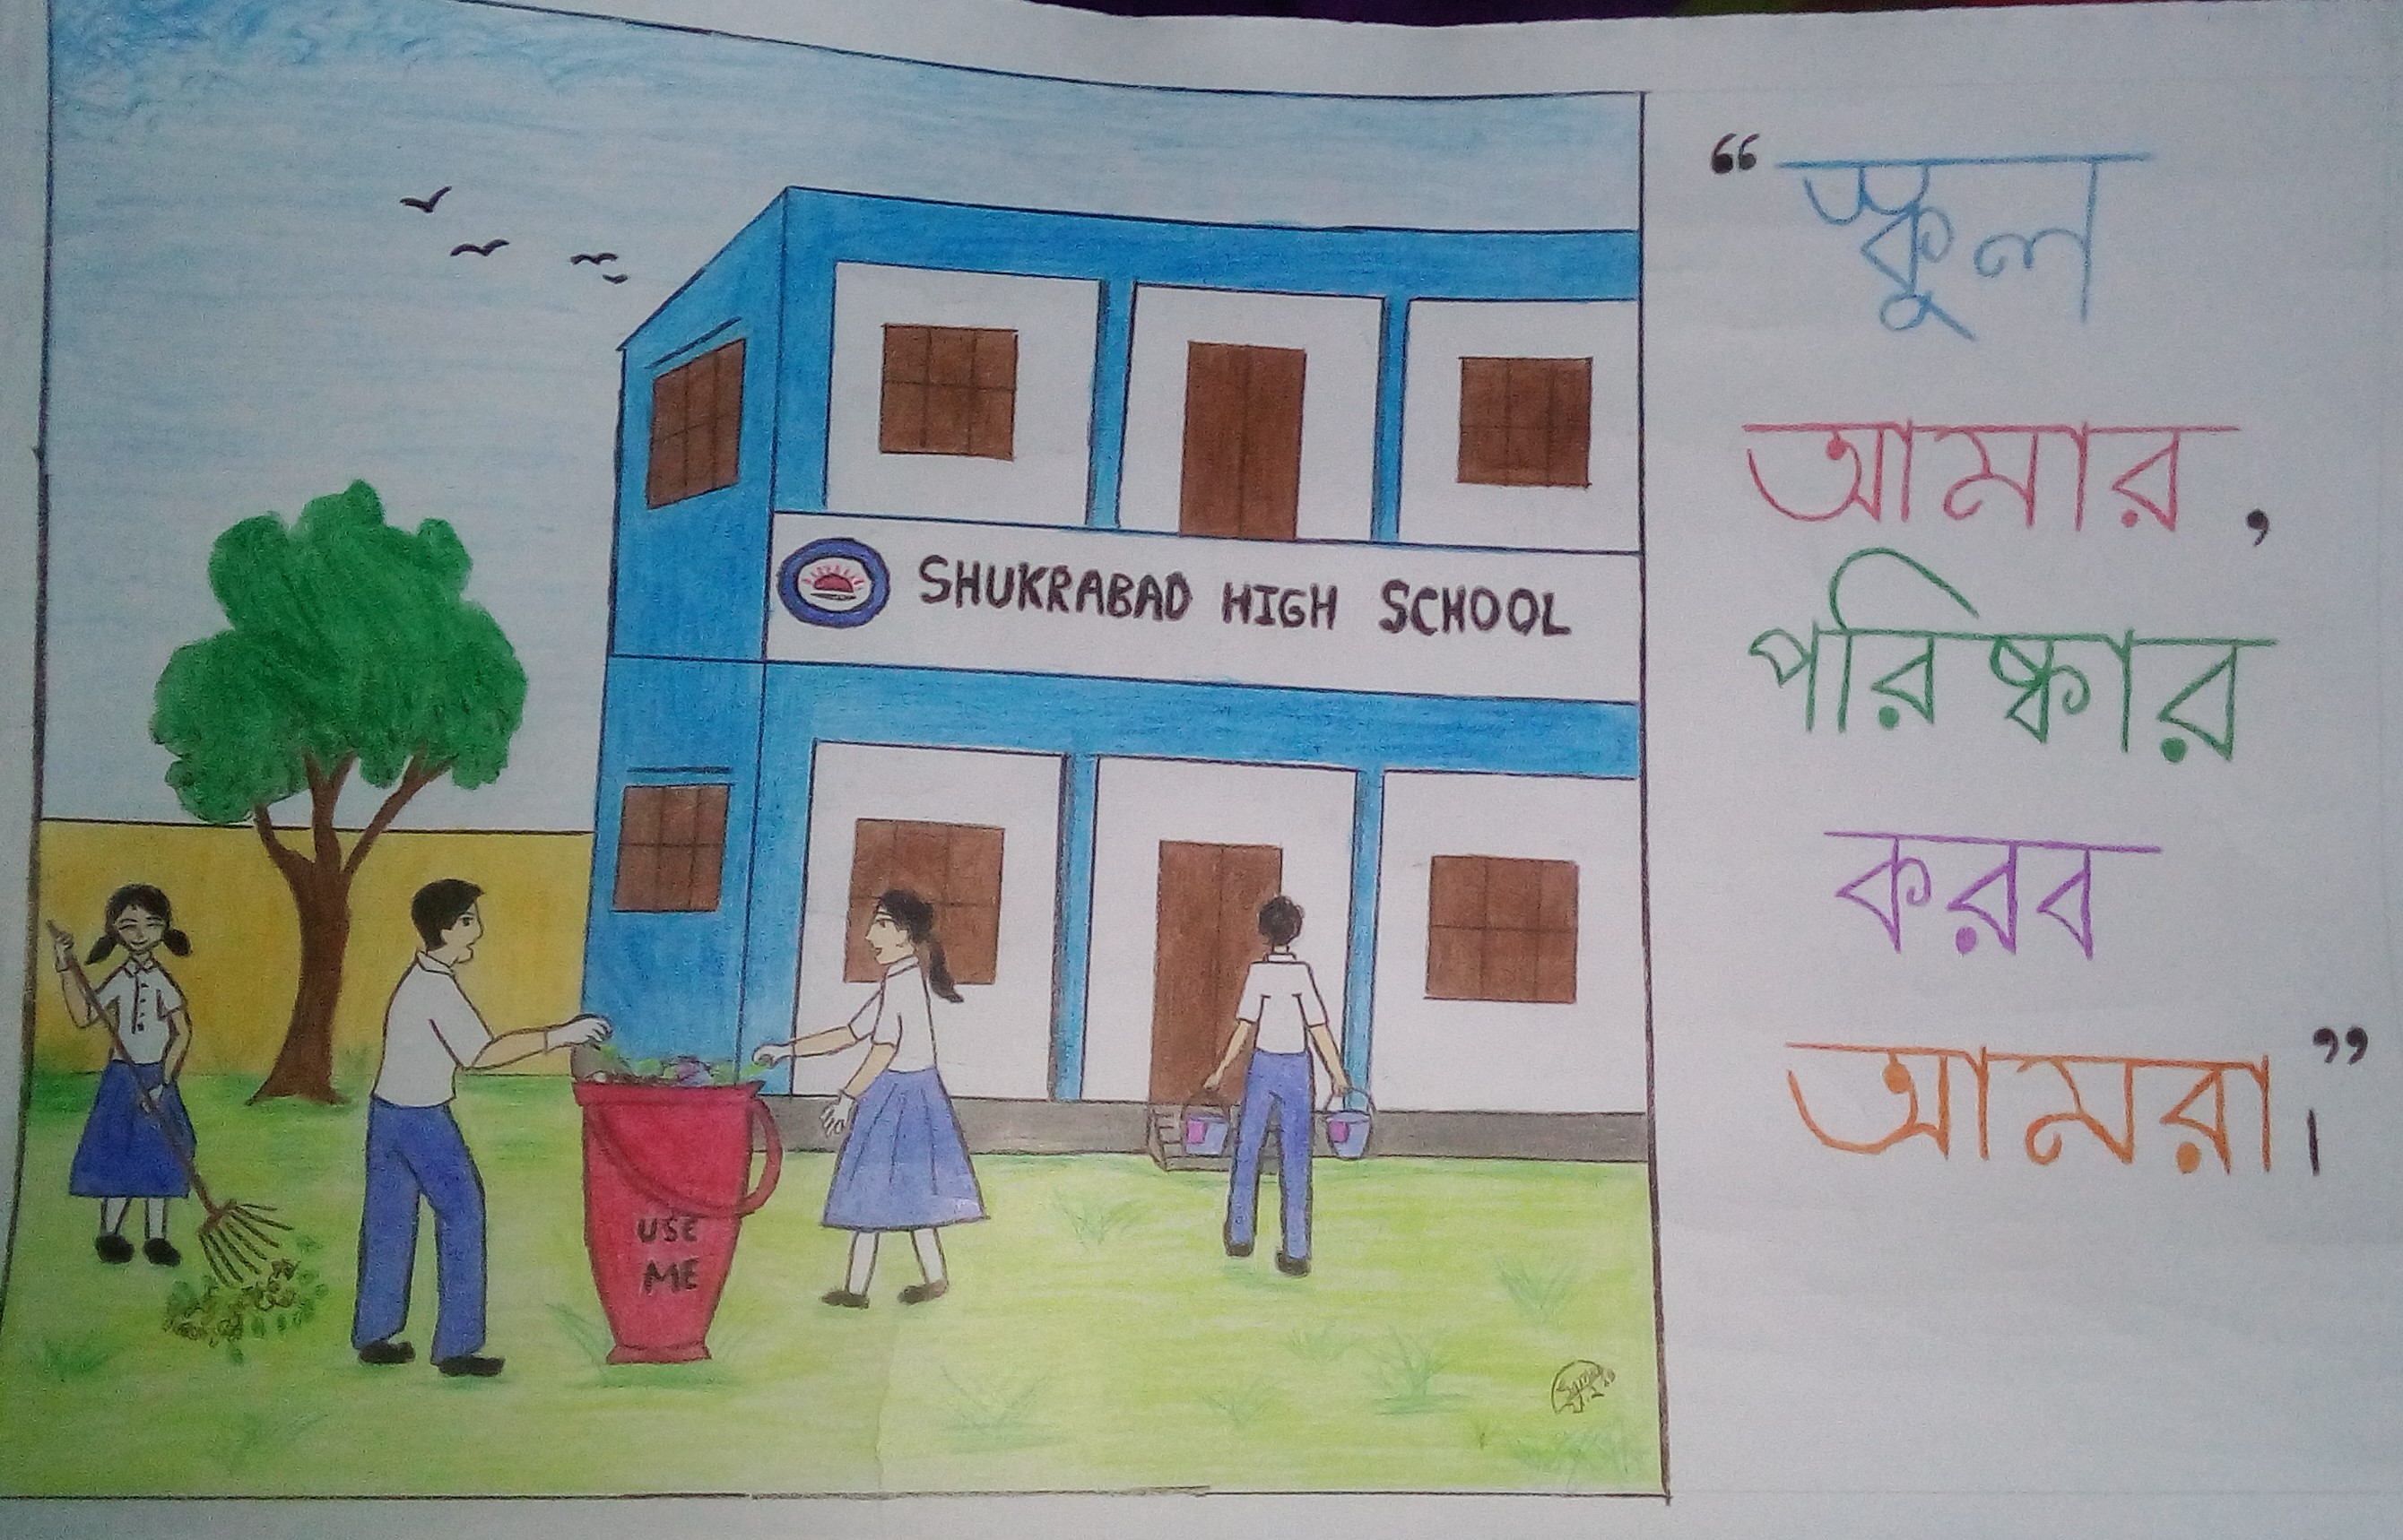 SHUKRABAD HIGH SCHOOL
USE
ME
“স্কুল
আমার,
পরিষ্কার
করব
আমরা।”